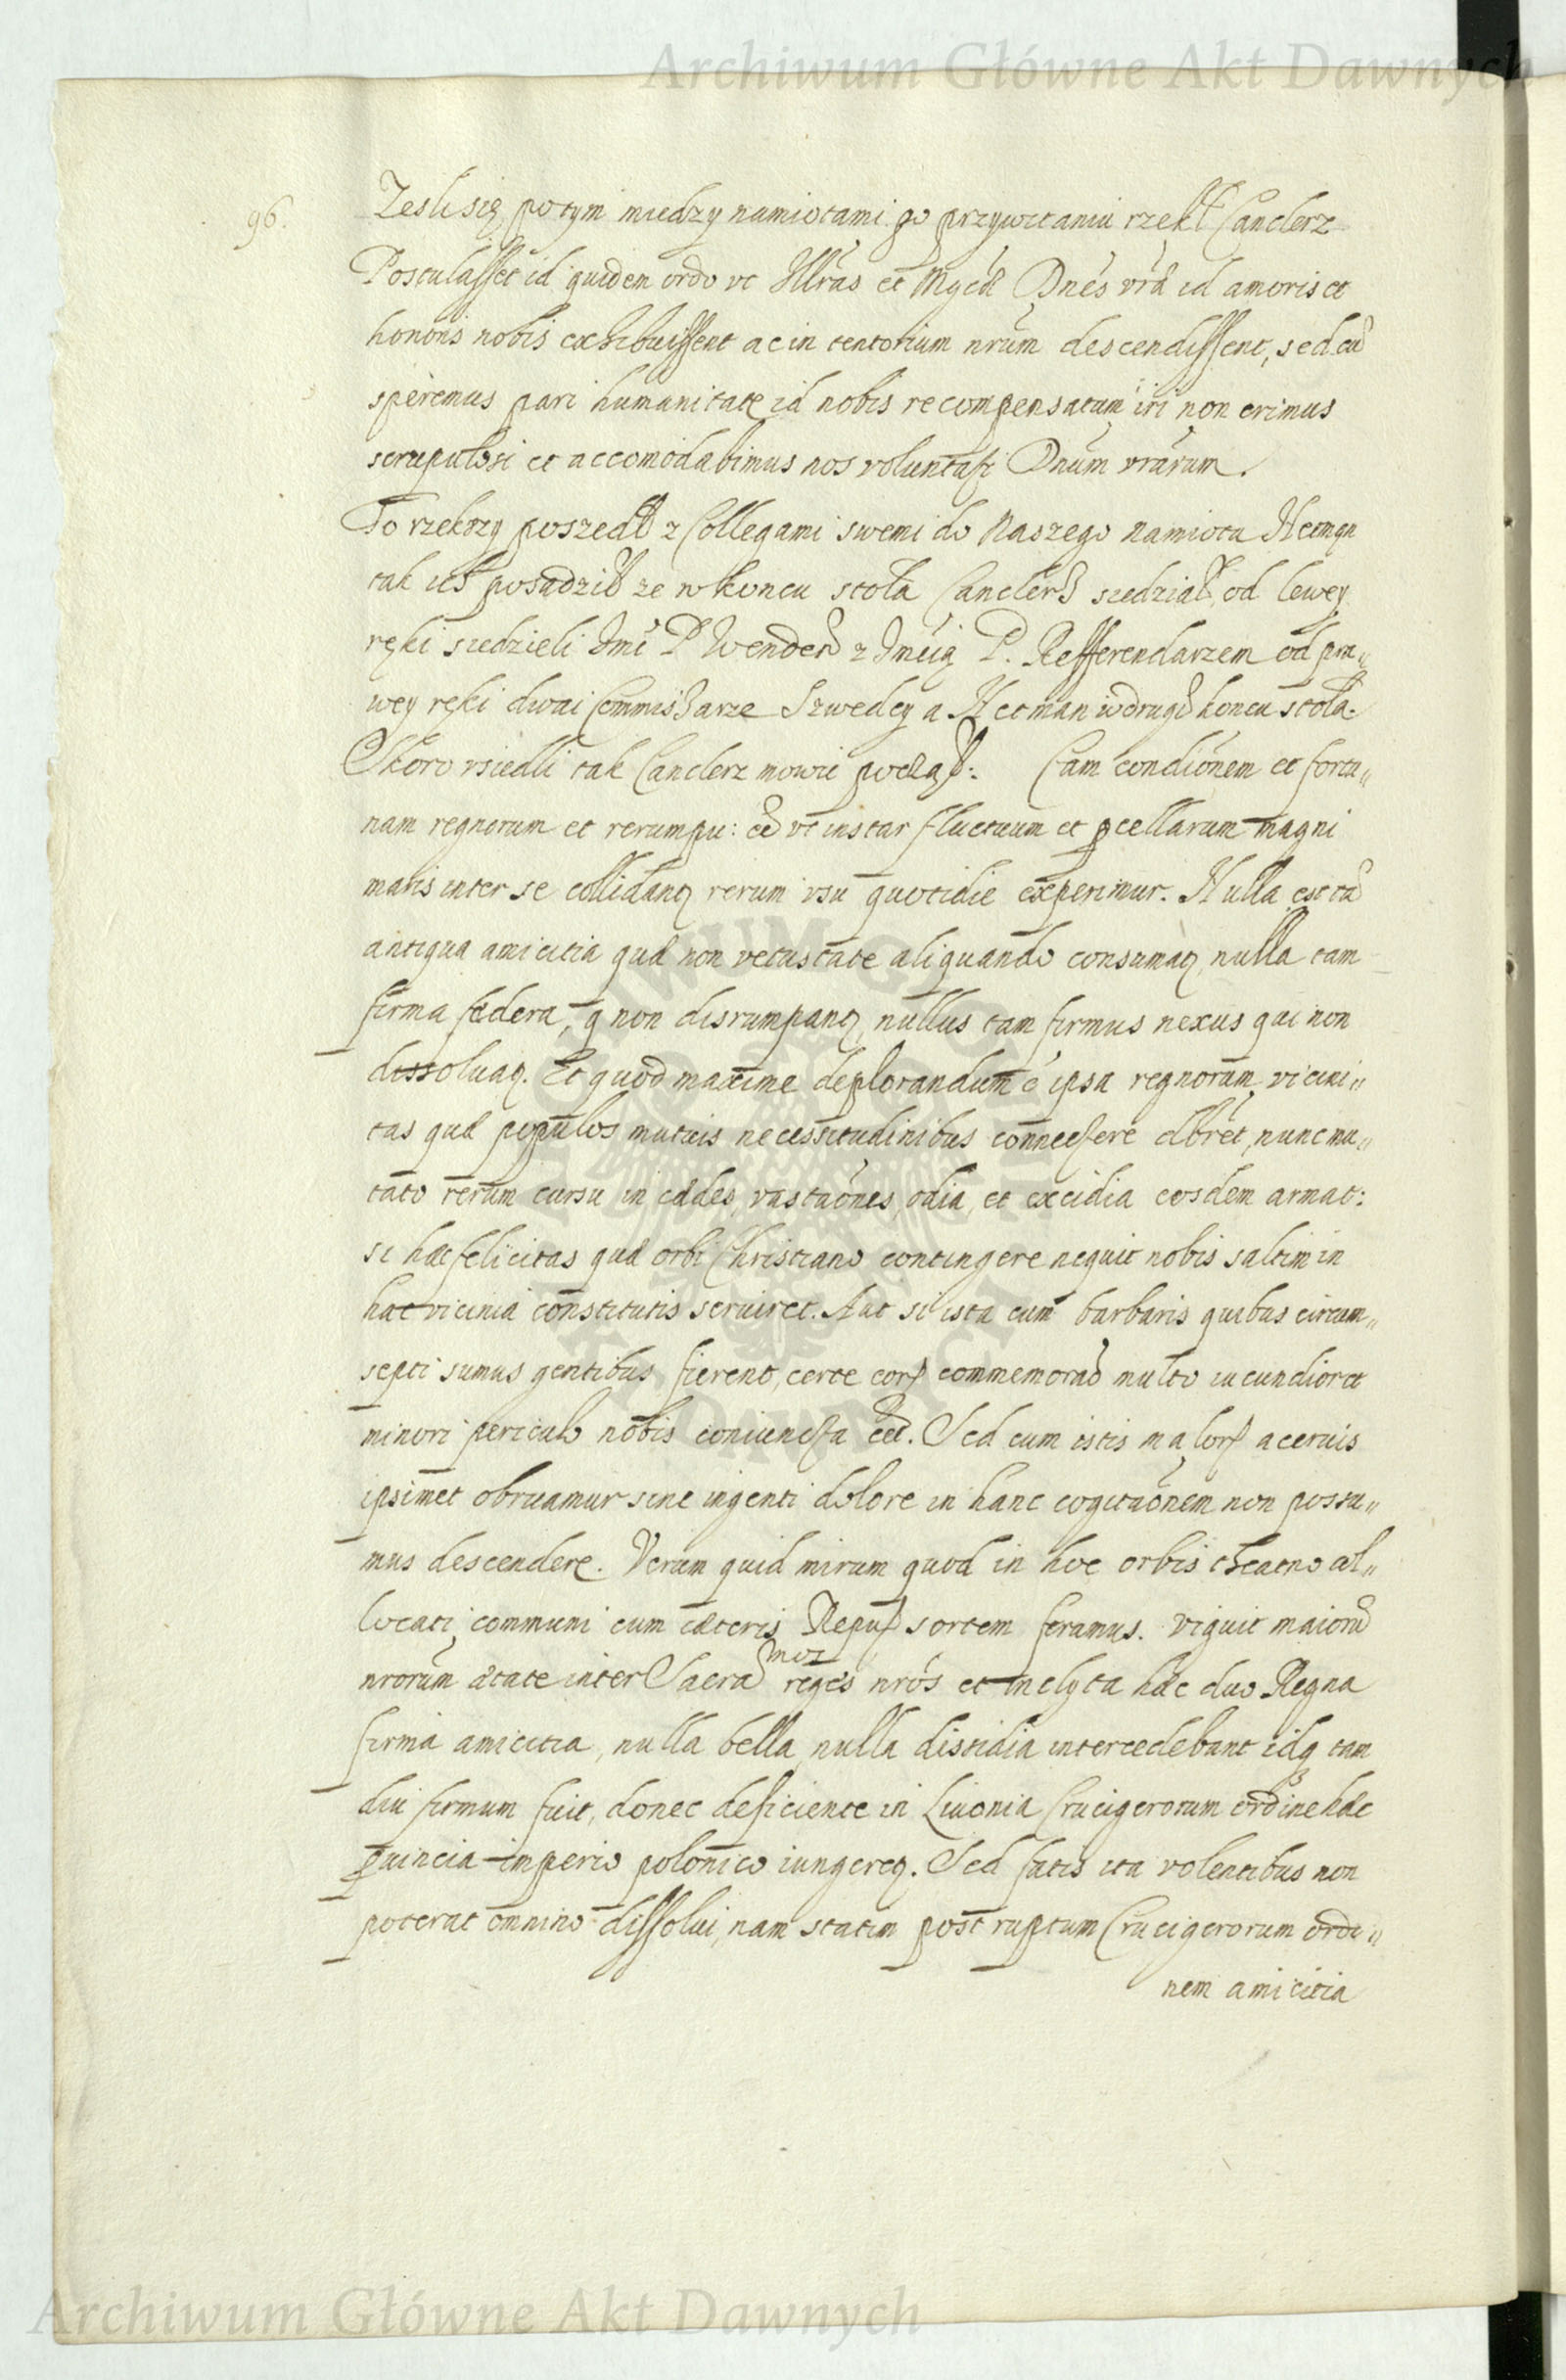 Archiwum Główne Akt Dawnych
96.
Zesli się potym miedzy namiotami po przywitaniu rzekł Canclerz
Postulasset id quidem ordo vt Illras et Mgcæ Dnes vræ id amoris et
honoris nobis exhibuissent ac in tentorium nrum descendissent, sed cū
speremus pari humanitate id nobis recompensatum iri non erimus
scrupulosi et accomodabimus nos voluntati Dnum vrarum.
To rzekszy poszedł z Collegami swemi do Naszego namiotu Hetman
tak ich posadził ze w koncu stola Canclerz siedział, od lewey
ręki siedzieli Jmć P Wendeń z Jmcią P. Refferendarzem od pra„
wey ręki dwai Commissarze Szwedcy a Hetman w drugiē koncu stola.
Skoro vsiedli tak Canclerz mowic począł: Eam condiōnem et fortu„
nam regnorum et rerumpu: eē vt instar fluctuum et pcellarum magni
maris inter se collidanq rerum vsu quotidie experimur. Nulla est tā
antiqua amicitia quæ non vetustate aliquando consumaq, nulla tam
firma fædera, q non disrumpanq, nullus tam firmus nexus qui non
dissoluaq. Et quod maxime deplorandum ē ipsa regnorum vicini„
tas quæ populos mutuis necessitudinibus connectere dbret, nunc mu„
tato rerum cursu in cædes, vastaōnes, odia, et excidia eosdem armat:
si hæc felicitas quæ orbi Christiano contingere nequit nobis saltim in
hac vicinia constitutis seruiret. Aut si ista cum barbaris quibus circum„
septi sumus gentibus fierent, certe eorum commemorāo multo iucundior et
minori periculo nobis coniuncta eēt. Sed cum istis malorum aceruis
ipsimet obruamur sine ingenti dolore in hanc cogitaōnem non possu„
mus descendere. Verum quid mirum quod in hoc orbis theatro al„
locati communi cum cæteris Repub sortem feramus. Viguit maiorū
nrorum ætate inter Sacras
reges nros et inclyta hæc duo Regna
firma amicitia, nulla bella nulla dissidia intercedebant idq tam
diu firmum fuit, donec deficiente in Liuonia Crucigerorum ordine hæc
puincia imperio polonico iungereq. Sed fatis ita volentibus non
poterat omnino dissolui, nam statim post ruptum Crucigerorum ordi„
nem amicitia
Archiwum Główne Akt Dawnych